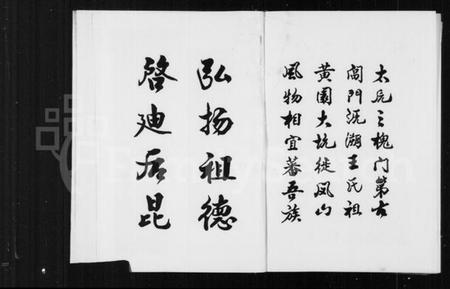 太原三槐门第古
阁门泥湖王氏祖
黄园大坑徙凤山
风物相宜蕃吾族
弘扬祖德
启迪后昆